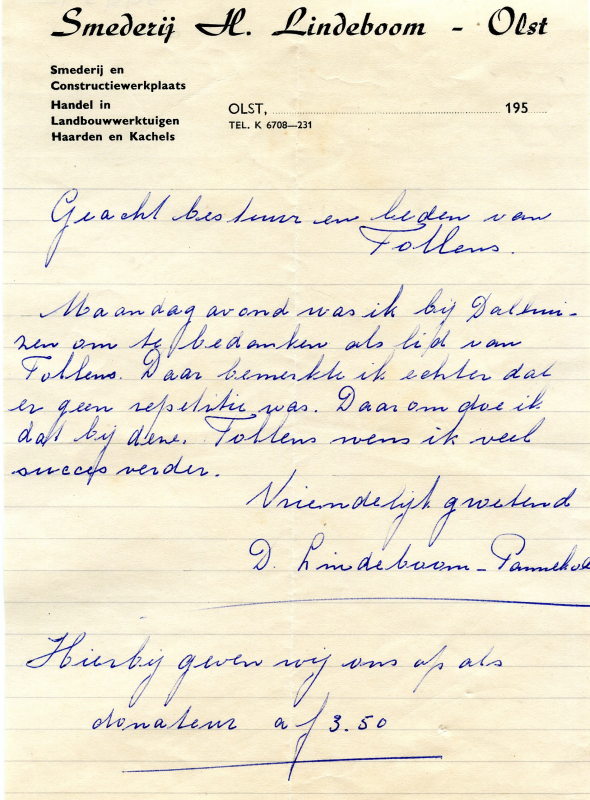 Smederij H. Lindeboom - Olst
Smederij en
Constructiewerkplaats
Handel in
Landbouwwerktuigen
Haarden en Kachels
OLST, 195
TEL. K 6708—231
Geacht bestuur en leden van
Tollens.
Maandag avond was ik bij Dalhui-
zen om te bedanken als lid van
Tollens. Daar bemerkte ik echter dat
er geen repetitie was. Daarom doe ik
dat bij deze. Tollens wens ik veel
succes verder.
Vriendelijk groetend
D. Lindeboom-
Hierbij geven wij ons op als
donateur a ƒ 3.50